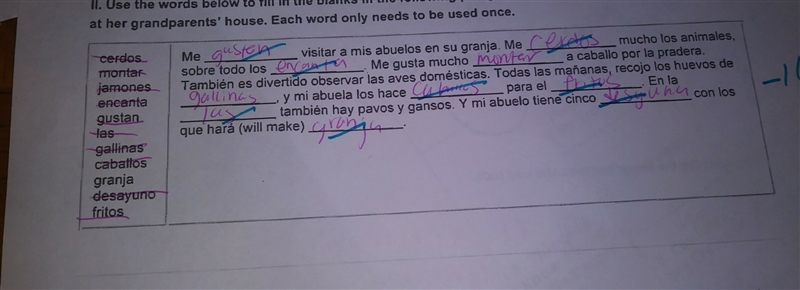 II. Use the words below to fill in the blanks in the following
at her grandparents' house. Each word only needs to be used once.
cerdos
montar
jamones
encanta
gustan
las
gallinas
caballos
granja
desayuno
fritos
Me gustan visitar a mis abuelos en su granja. Me cerdos mucho los animales,
sobre todo los encanta. Me gusta mucho montar a caballo por la pradera.
También es divertido observar las aves domésticas. Todas las mañanas, recojo los huevos de
gallinas, y mi abuela los hace para el fritos. En la
las también hay pavos y gansos. Y mi abuelo tiene cinco con los
que hará (will make) granja.